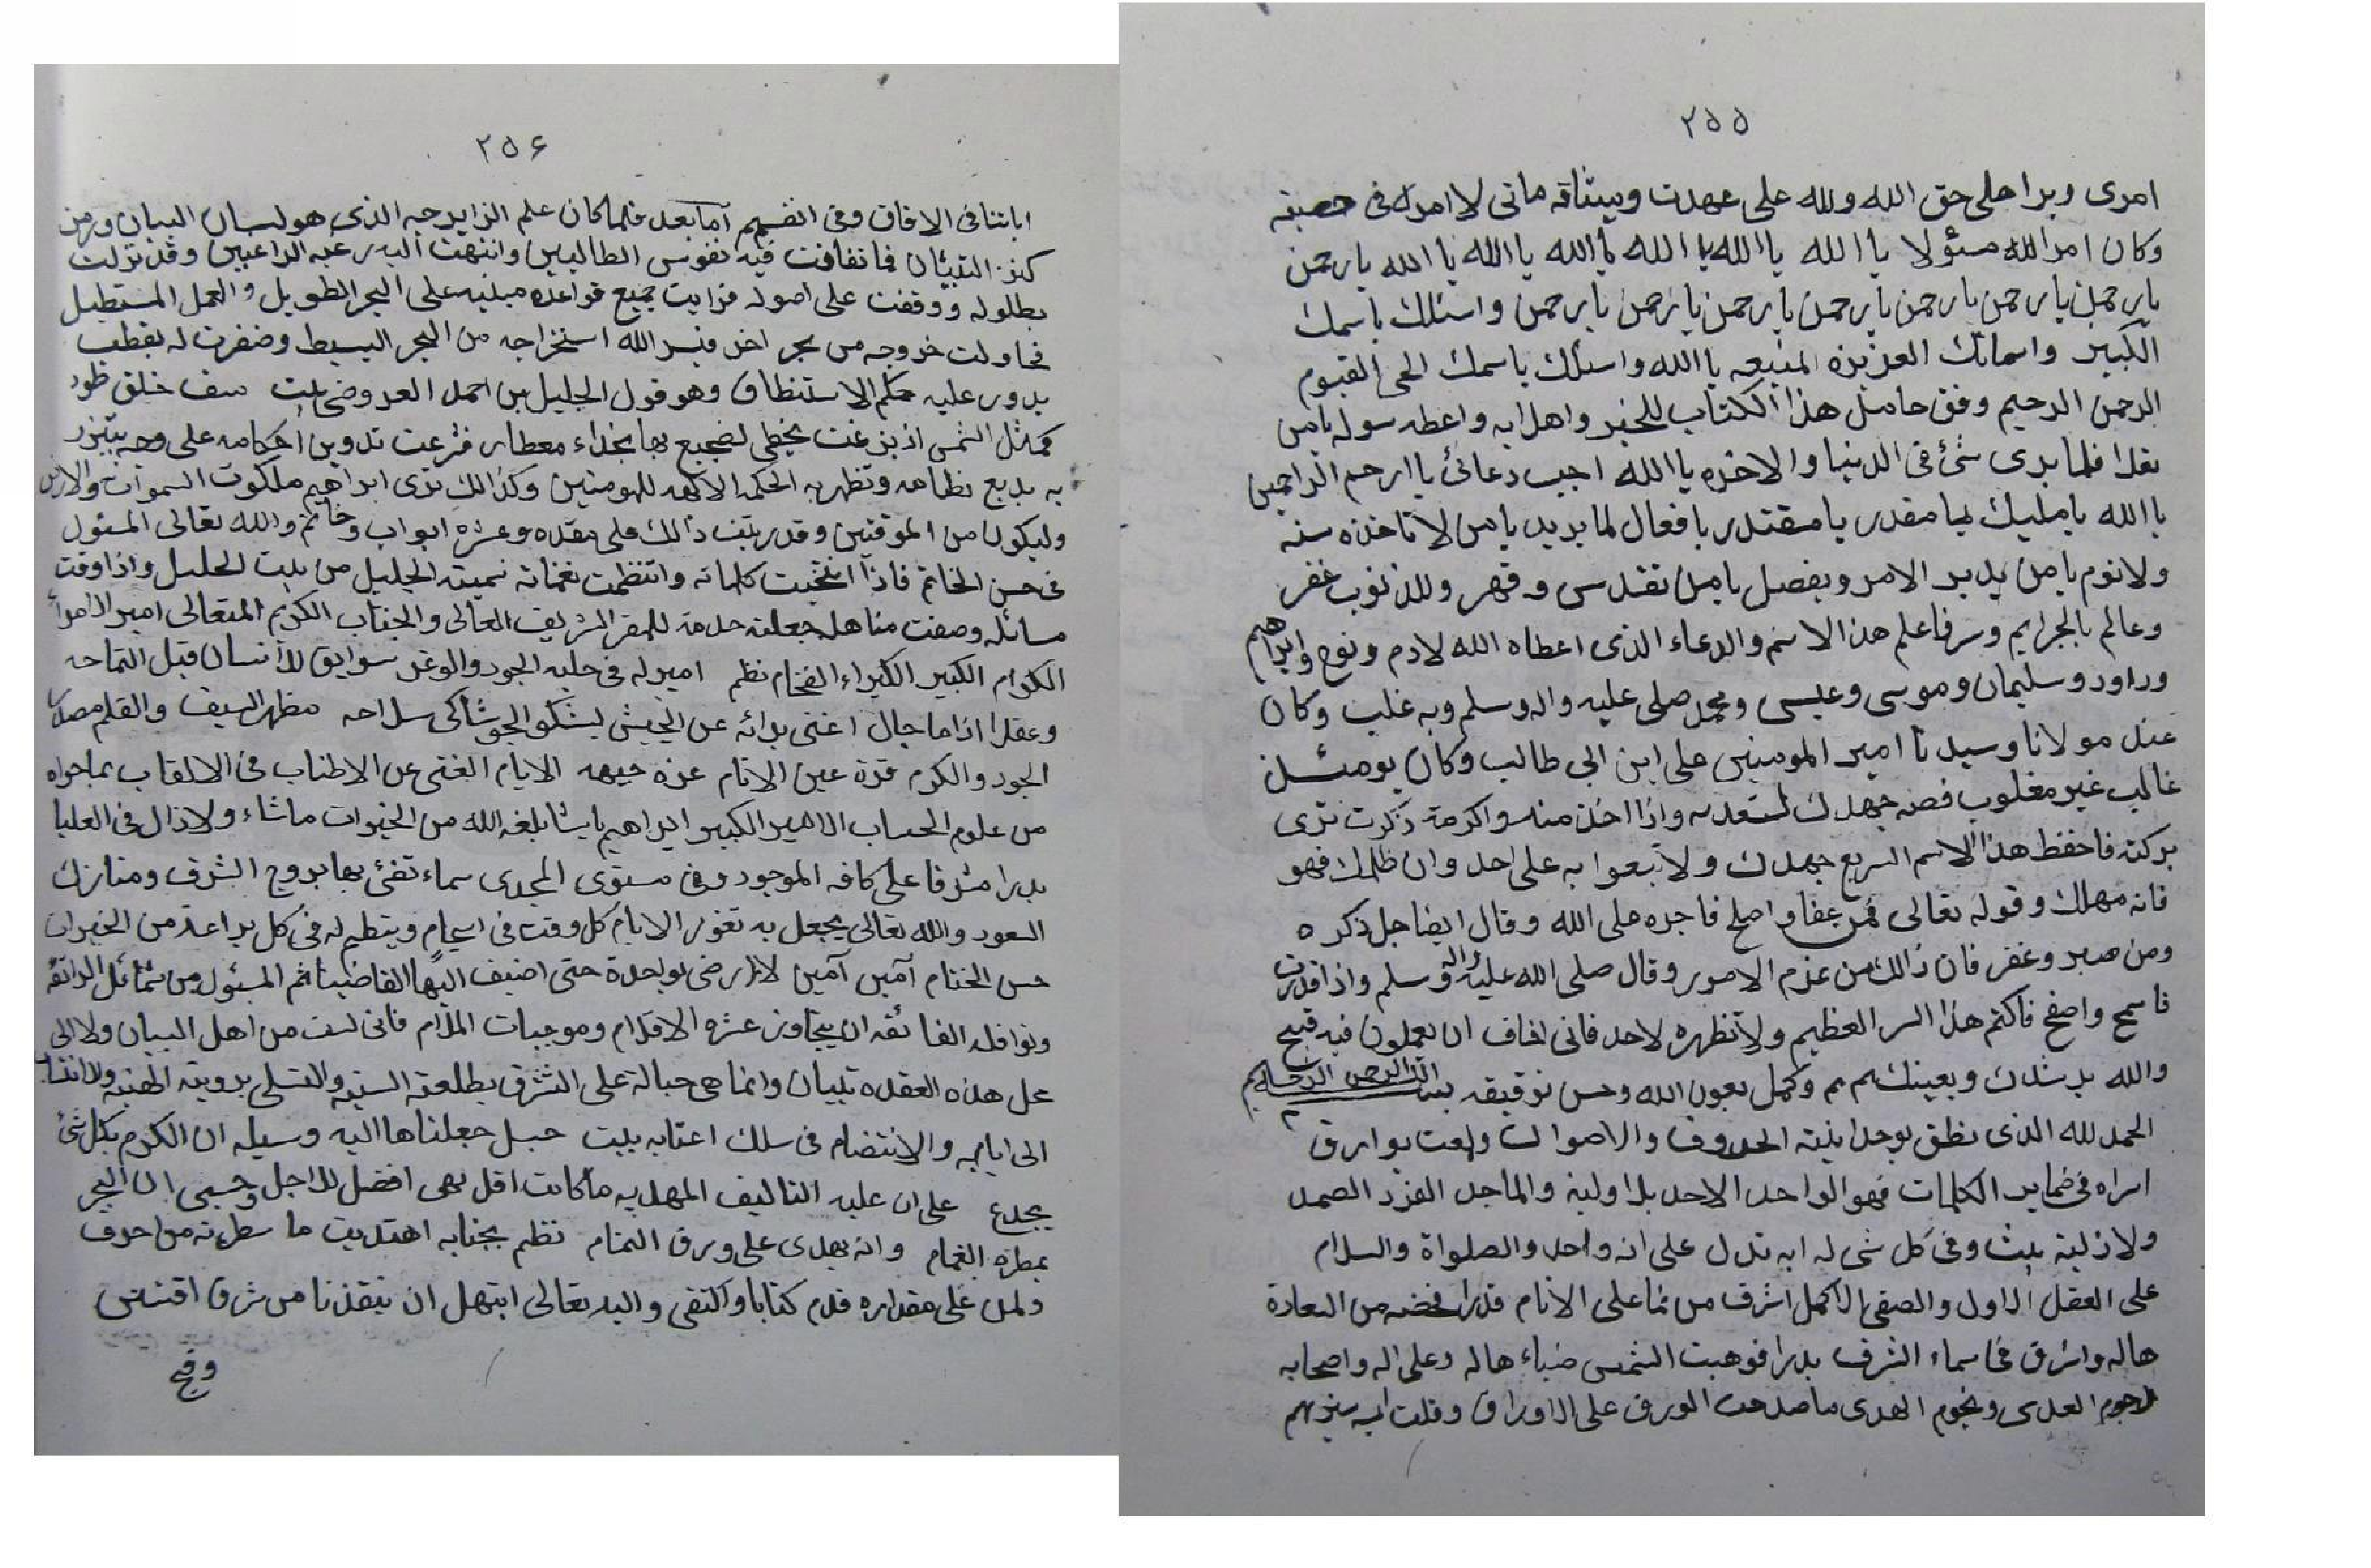 ٢٥٥
امری وبرا على حق الله ولله على عهدت وميثاقه مانى لا امرك فى
وكان امر الله مسؤلا يا الله يا الله يا الله يا الله يا الله يا الله يا رحمن
يا رحمن يا رحمن يا رحمن يا رحمن يا رحمن يا رحمن يا رحمن واسئلك باسمك
الكبير واسمائك العزيزه المنيعه يا الله واسئلك باسمك الحى القيوم
الرحمن الرحيم وفق حامل هذا الكتاب للخير واهل ابه واعطه سوله يا من
فلما يرى شئ فى الدنيا والاخره يا الله اجب دعائى يا ارحم الراحمين
يا الله يا مليك يا مقدر يا مقتدر يا فعال لما يريد يا من لا تاخذه سنه
ولا نوم يا من يدبر الامر ويفصل يا من تقدس وقهر وللذنوب غفر
وعالم بالجرايم وسر فاعلم هذا الاسم والدعاء الذى اعطاه الله لادم ونوح وابراهيم
وداود وسليمان وموسى وعيسى ومحمد صلى عليه واله وسلم وبه غلب وكان
عند مولانا وسيدنا امير المومنين على ابن ابى طالب وكان يومئذ
غالب غير مغلوب فصنه جهدك لتسعد به واذا اخذ منك واكرمته ذكرت ترى
بركته فاحفظ هذا الاسم السريع جهدك ولا تبعوا به على احد وان ظلمك فهو
فانه مهلك وقوله تعالى فمن عفا واصلح فاجره على الله وقال ايضا جل ذكره
ومن صبر وغفر فان ذالك من عزم الامور وقال صلى الله عليه واله وسلم واذا قدرت
فاسمح واصفح فاكتم هذا السر العظيم ولا تظهره لاحد فانى اخاف ان يعملون فيه قبيح
والله يرشدك ويعينك م م وكمل بعون الله وحسن توفيقه بسم الله الرحمن الرحيم
الحمد لله الذى نطق بوحدانيته الحروف والاصوات ولعت بوارق
اسراه فى ضماير الكلمات فهو الواحد الاحد بلا اوليه والماجد الفرد الصمد
ولا زلية يلث وفى كل شى له ايه تدل على انه واحد والصلواة والسلام
على العقل الاول والصفى الاكمل اشرف من نما على الانام قدرا من السعادة
هاله واشرق فى سماء الشرف بدرا فوهبت الشمس ضياء هاله وعلى اله واصحابه
لرجوم العدى ونجوم الهدى ما صدحت الورق على الاوراق وقلت ايه سنريهم
٢٥۶
اياتنا فى الافاق وفى انفسهم اما بعد فلما كان علم الزايرجه الذى هو لسان البيان ورمز
كنز التبيان فانفافت فيه نفوس الطالبين وانتهت اليه رغبه الراغبين وقد نزلت
بطلوله ووقفت على اصوله فرايت جميع قواعده مبنيه على البحر الطويل والعمل المستطيل
فحاولت خروجه من بحر اخر فيسر الله استخراجه من البحر البسيط وضفرت له بقطب
يدور عليه حكم الاستنطاق وهو قول الجليل بن احمد العروضى بيت صف خلق خود
كمثل الشمس اذ بزغت يحظى لضجيع بها نجلاء معطار فشرعت تدوين احكامه على وجه يتيزر
به بديع نظامه وتظهر به الحكمه الالهيه للمومنين وكذالك نرى ابراهيم ملكوت السموات والارض
وليكون من الموقنين وقد رتبت ذالك على مقدمه وعشره ابواب وخاتم والله تعالى المسئول
فى حسن الخاتم فاذا انتخبت كلماته وانتظمت نغماته نميته الجليل من بيت الخليل واذا وقت
مسائله وصفت مناهله جعلته خدمة للمقر الشريف العالى والجناب الكريم المتعالى امير الامراء
الكرام الكبير الكبراء الفخام نظم امير له فى حلبه الجود والوغى سوابق للانسان قبل التماحه
وعقلا اذا ما جال اغنى برائه عن الجيش ليشكو الجو شاكى سلاحه مظهر السيف والقلم مصدر
الجود والكرم قرة عين الانام غره جبهه الايام الغنى عن الاطناب فى الالقاب بما حواه
من علوم الحساب الامير الكبير ابراهيم باشا بلغه الله من الخيرات ما شاء ولا زال فى العليا
بدرا مشرفا على كافه الموجود وفى مستوى المجدى سماء تفئ بها بروج الشرف ومنازل
السعود والله تعالى يجعل به ثغور الايام كل وقت فى ابتسام وينظم له فى كل براعة من الخيرات
حسن الختام آمين آمين لا ارضى بواحدة حتى اضيف اليها الفا ضيناثم المسئول من شمائل الرائقه
ونوافله الفائقه ان يتجاوز عشره الاقدام وموجبات الملام فانى لست من اهل البيان ولا لى
على هذه العقده تبيان وانما هى حباله على التشرق بطلعته السنيه والتملى برويته الهنيه والانتساب
الى ايابه والانتضام فى سلك اعتابه بيت حبل جعلناها اليه وسيله ان الكرم بكل شئ
يجدع على ان عليه التاليف المهديه ما كانت اقل فهى افضل للاجل وحسبى ان البحر
يمطره الغمام وانه يهدى على ورق التمام نظم بجنابه اهتديت ما سطرته من احرف
ولمن على مقداره قدم كتابا واكتفى واليه تعالى ابتهل ان ينقذنا من شرق اقتناص
وفخ